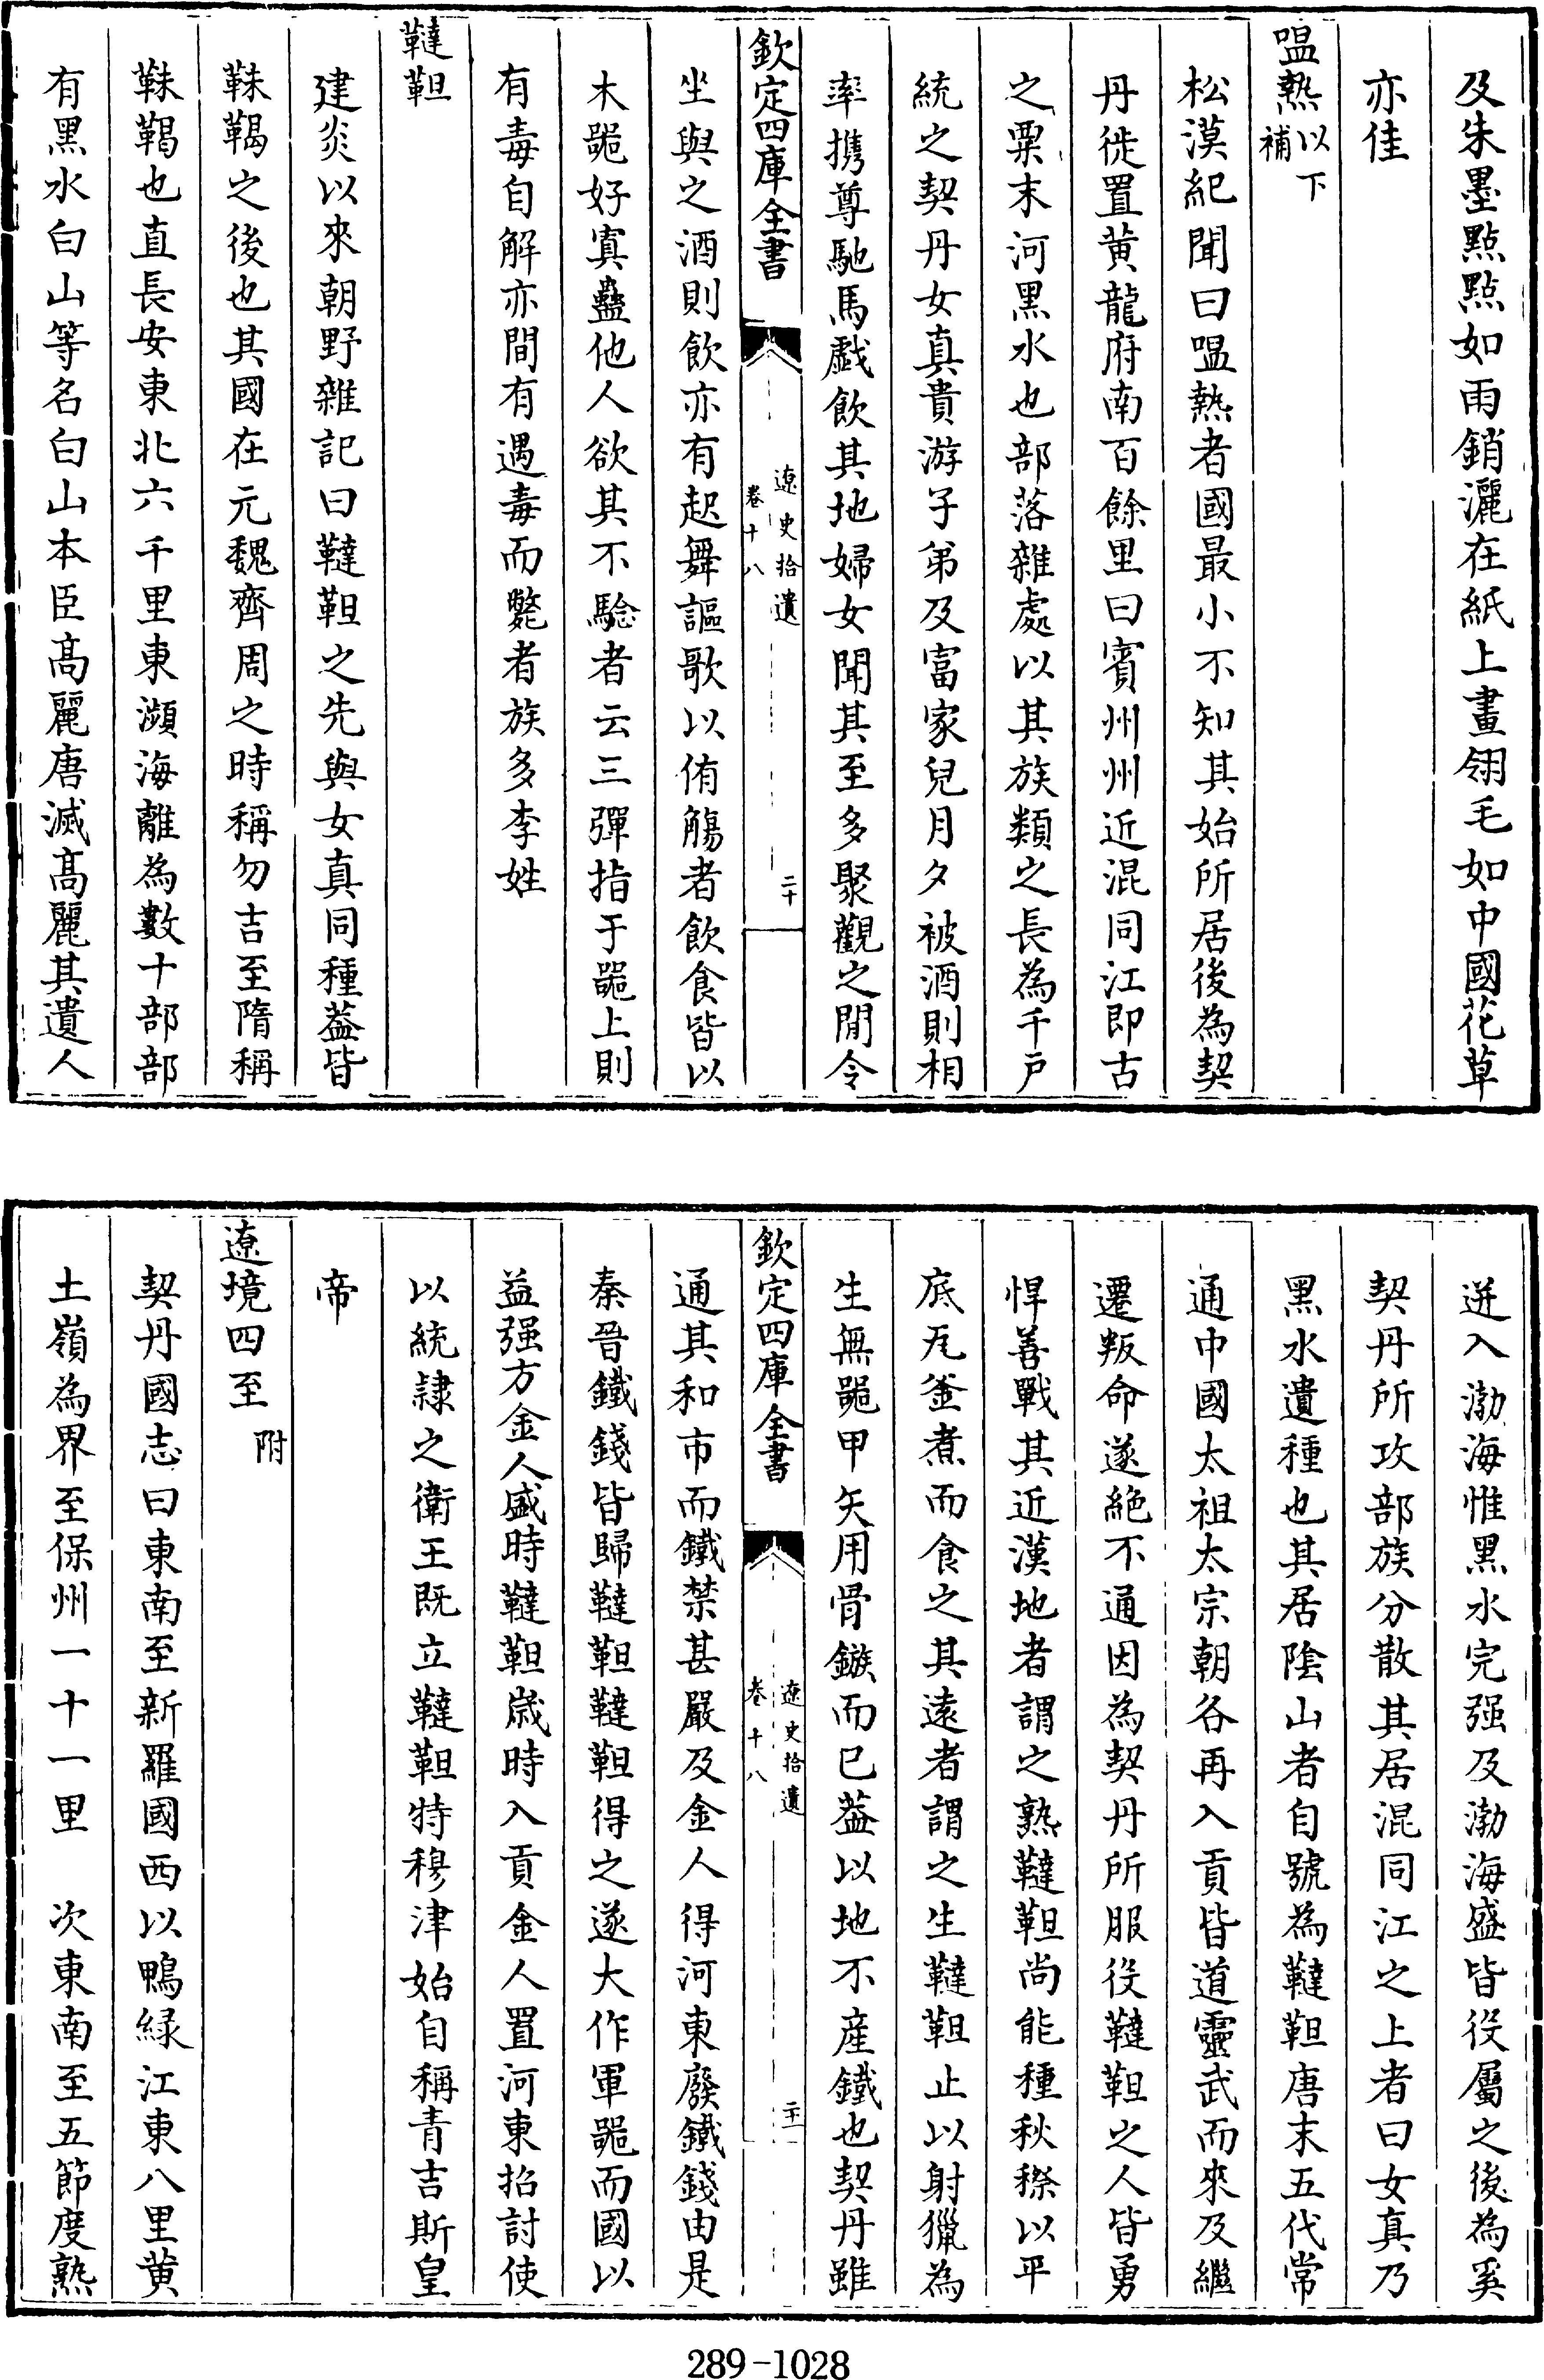 及朱墨點點如雨銷灑在紙上畫翎毛如中國花草
亦佳
嗢熱以下補
松漠紀聞曰嗢熱者國最小不知其始所居後為契
丹徙置黄龍府南百餘里曰賓州州近混同江即古
之粟末河黑水也部落雜處以其族類之長為千户
統之契丹女真貴游子弟及富家兒月夕被酒則相
率携尊馳馬戯飲其地婦女聞其至多聚觀之閒令
欽定四庫全書
遼史拾遺
卷十八
二十
坐與之酒則飲亦有起舞謳歌以侑觴者飲食皆以
木噐好寘蠱他人欲其不騐者云三彈指于噐上則
有毒自解亦間有遇毒而斃者族多李姓
韃靼
建炎以來朝野雜記曰韃靼之先與女真同種葢皆
靺鞨之後也其國在元魏齊周之時稱勿吉至隋稱
靺鞨也直長安東北六千里東瀕海離為數十部部
有黑水白山等名白山本臣高麗唐滅高麗其遺人
迸入渤海惟黑水完强及渤海盛皆役屬之後為奚
契丹所攻部族分散其居混同江之上者曰女真乃
黑水遺種也其居陰山者自號為韃靼唐末五代常
通中國太祖太宗朝各再入貢皆道靈武而來及繼
遷叛命遂絶不通因為契丹所服役韃靼之人皆勇
悍善戰其近漢地者謂之熟韃靼尚能種秋穄以平
底瓦釜煮而食之其遠者謂之生韃靼止以射獵為
生無噐甲矢用骨鏃而已葢以地不産鐵也契丹雖
欽定四庫全書
遼史拾遺
卷十八
二十一
通其和市而鐵禁甚嚴及金人得河東廢鐵錢由是
秦晉鐵錢皆歸韃靼韃靼得之遂大作軍噐而國以
益强方金人盛時韃靼歲時入貢金人置河東招討使
以統隸之衛王既立韃靼特穆津始自稱青吉斯皇
帝
遼境四至附
契丹國志曰東南至新羅國西以鴨緑江東八里黄
土嶺為界至保州一十一里　次東南至五節度熟
289-1028